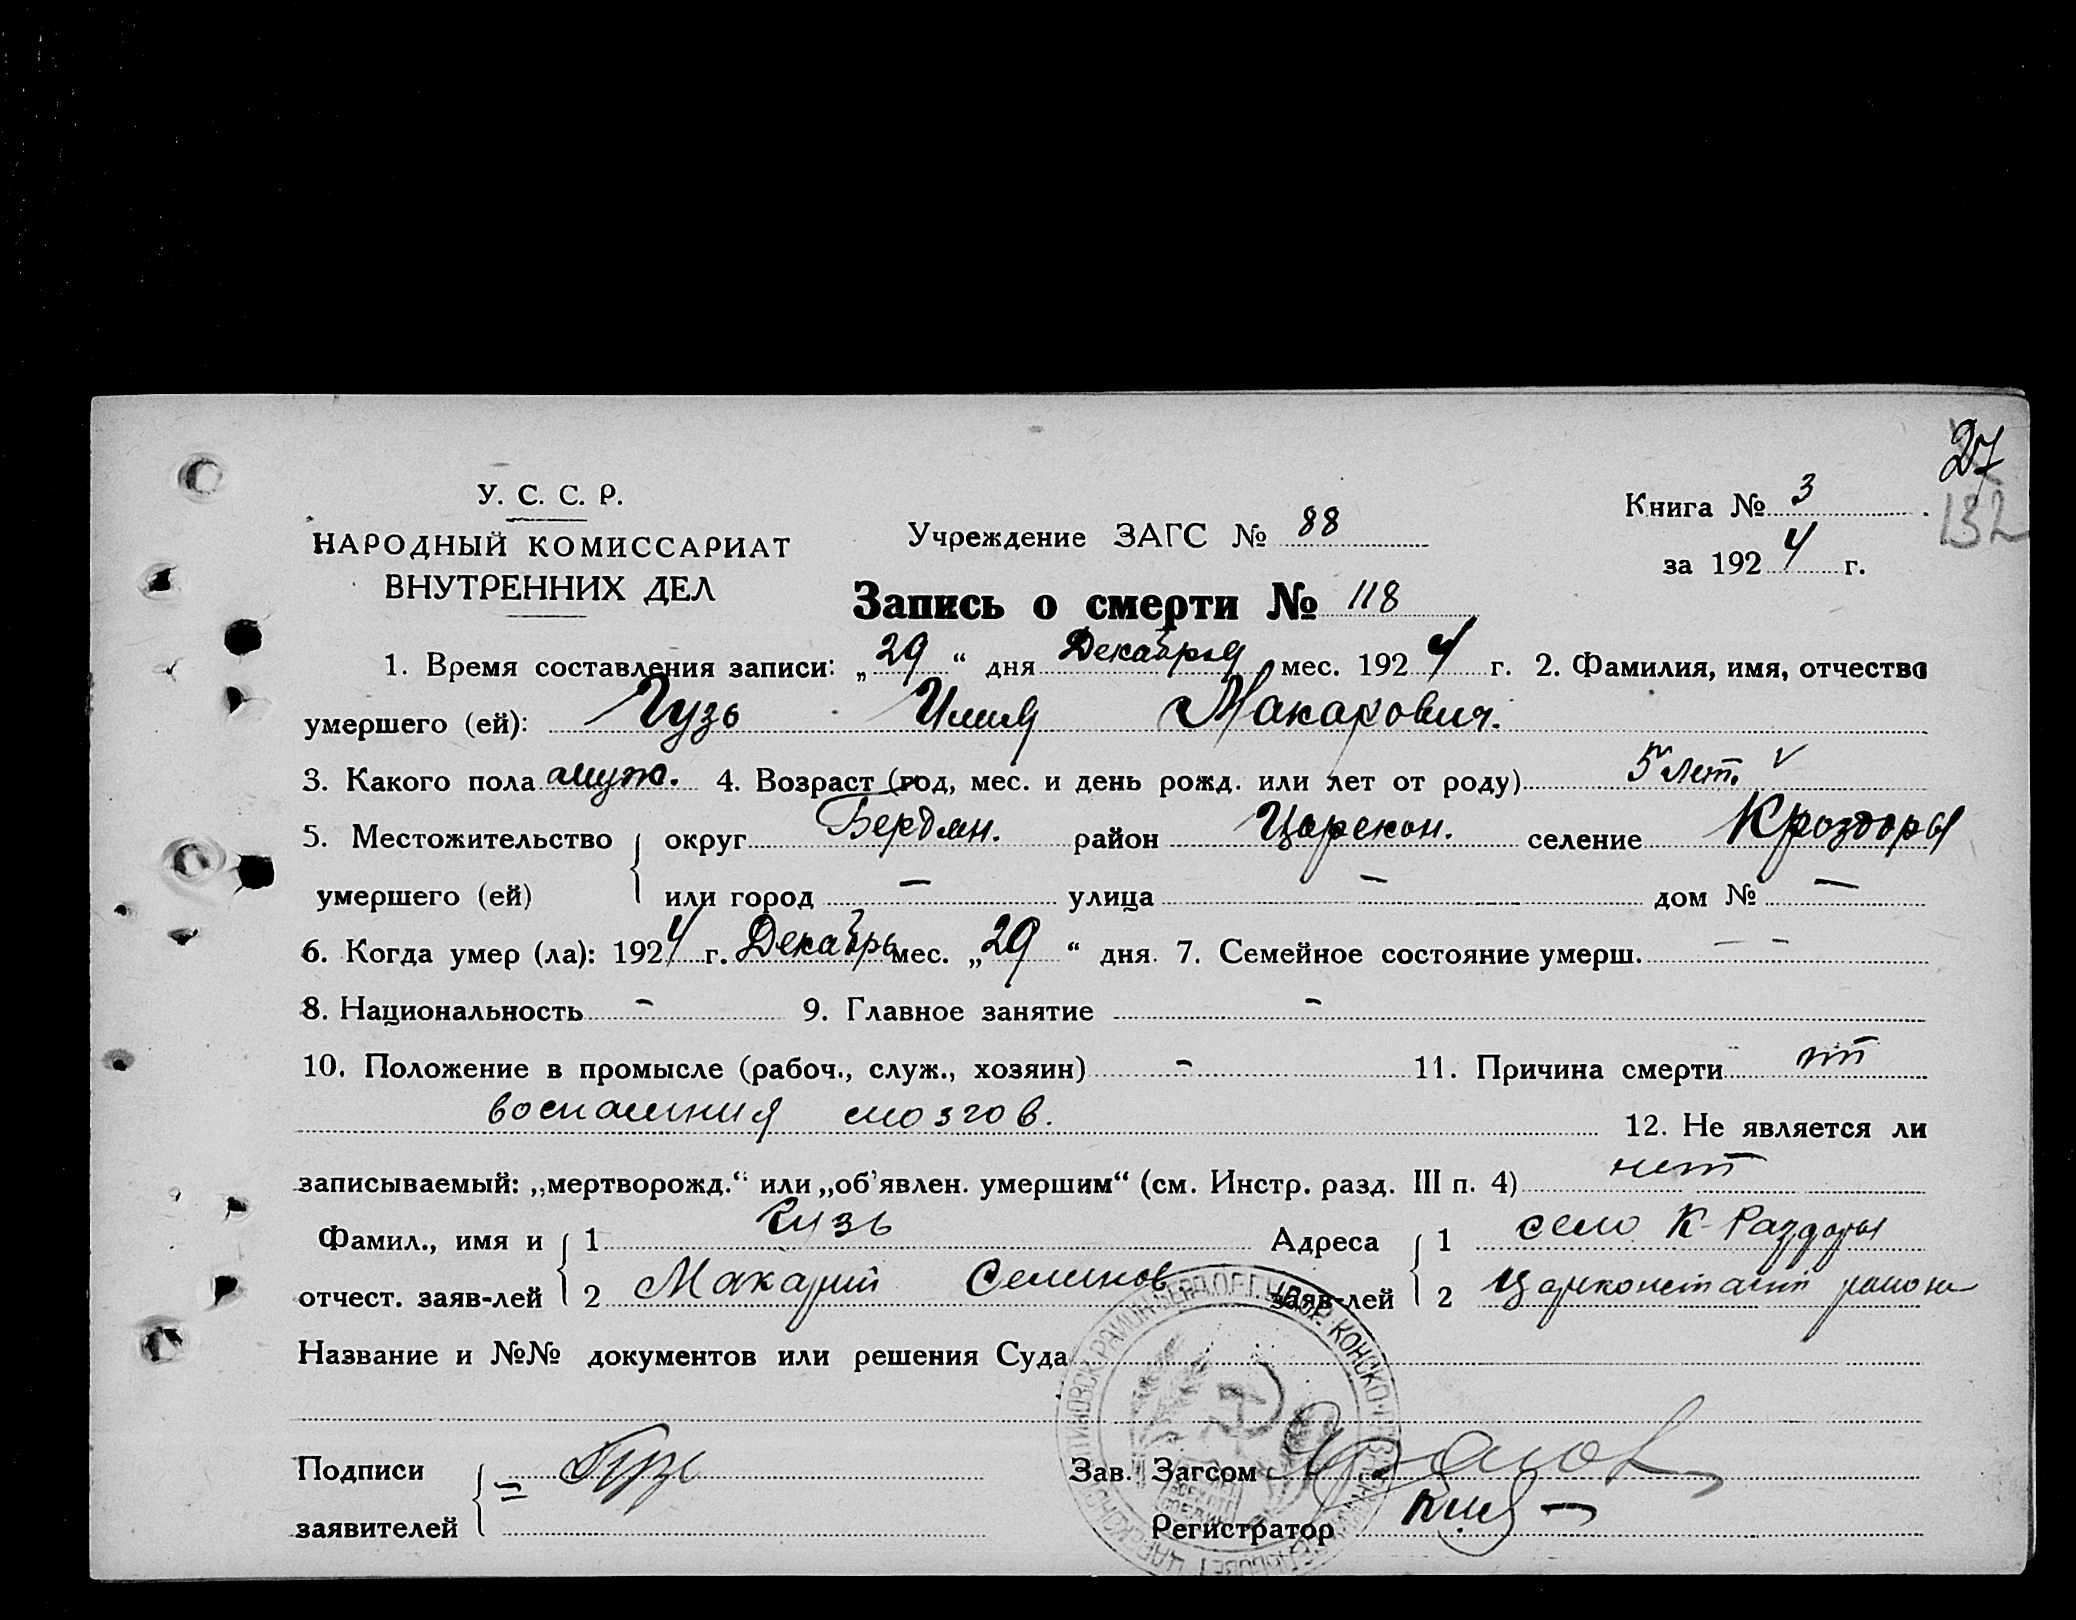 27
132
У. С. С. Р.
НАРОДНЫЙ КОМИССАРИАТ
ВНУТРЕННИХ ДЕЛ
Учреждение ЗАГС № 88
Книга № 3
за 1924 г.
Запись о смерти № 118
1. Время составления записи: „29“ дня Декабря мес. 1924 г. 2. Фамилия, имя, отчество
умершего (ей): Гузь Илия Макарович.
3. Какого пола муж. 4. Возраст (год, мес. и день рожд. или лет от роду) 5 лет.
5. Местожительство умершего (ей) округ Бердян. район Царекон. селение Кроздоры
или город — улица — дом № —
6. Когда умер (ла): 1924 г. Декабрь мес. „29“ дня. 7. Семейное состояние умерш. — —
8. Национальность - 9. Главное занятие -
10. Положение в промысле (рабоч., служ., хозяин) - 11. Причина смерти от
воспаления мозгов. 12. Не является ли
записываемый: „мертворожд.“ или „об'явлен. умершим“ (см. Инстр. разд. III п. 4) нет
Фамил., имя и отчест. заяв-лей 1 Гузь Адреса заяв-лей 1 село К-Раздоры
2 Макарий Семинов 2 Царконстант района
Название и №№ документов или решения Суда
Подписи заявителей = Гузь Зав. Загсом
Регистратор